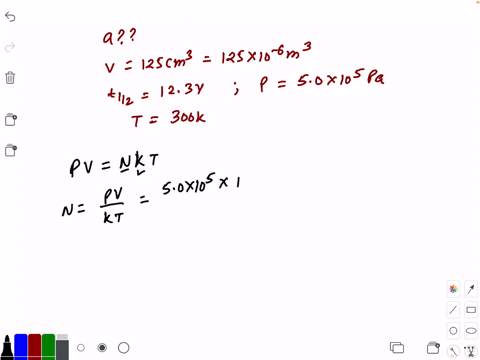 a??
V = 125cm³ = 125×10⁻⁶m³
t₁/₂ = 12.3y ; P = 5.0×10⁵ Pa
T = 300k
PV = NkT
N = PV/kT = 5.0×10⁵ × 1